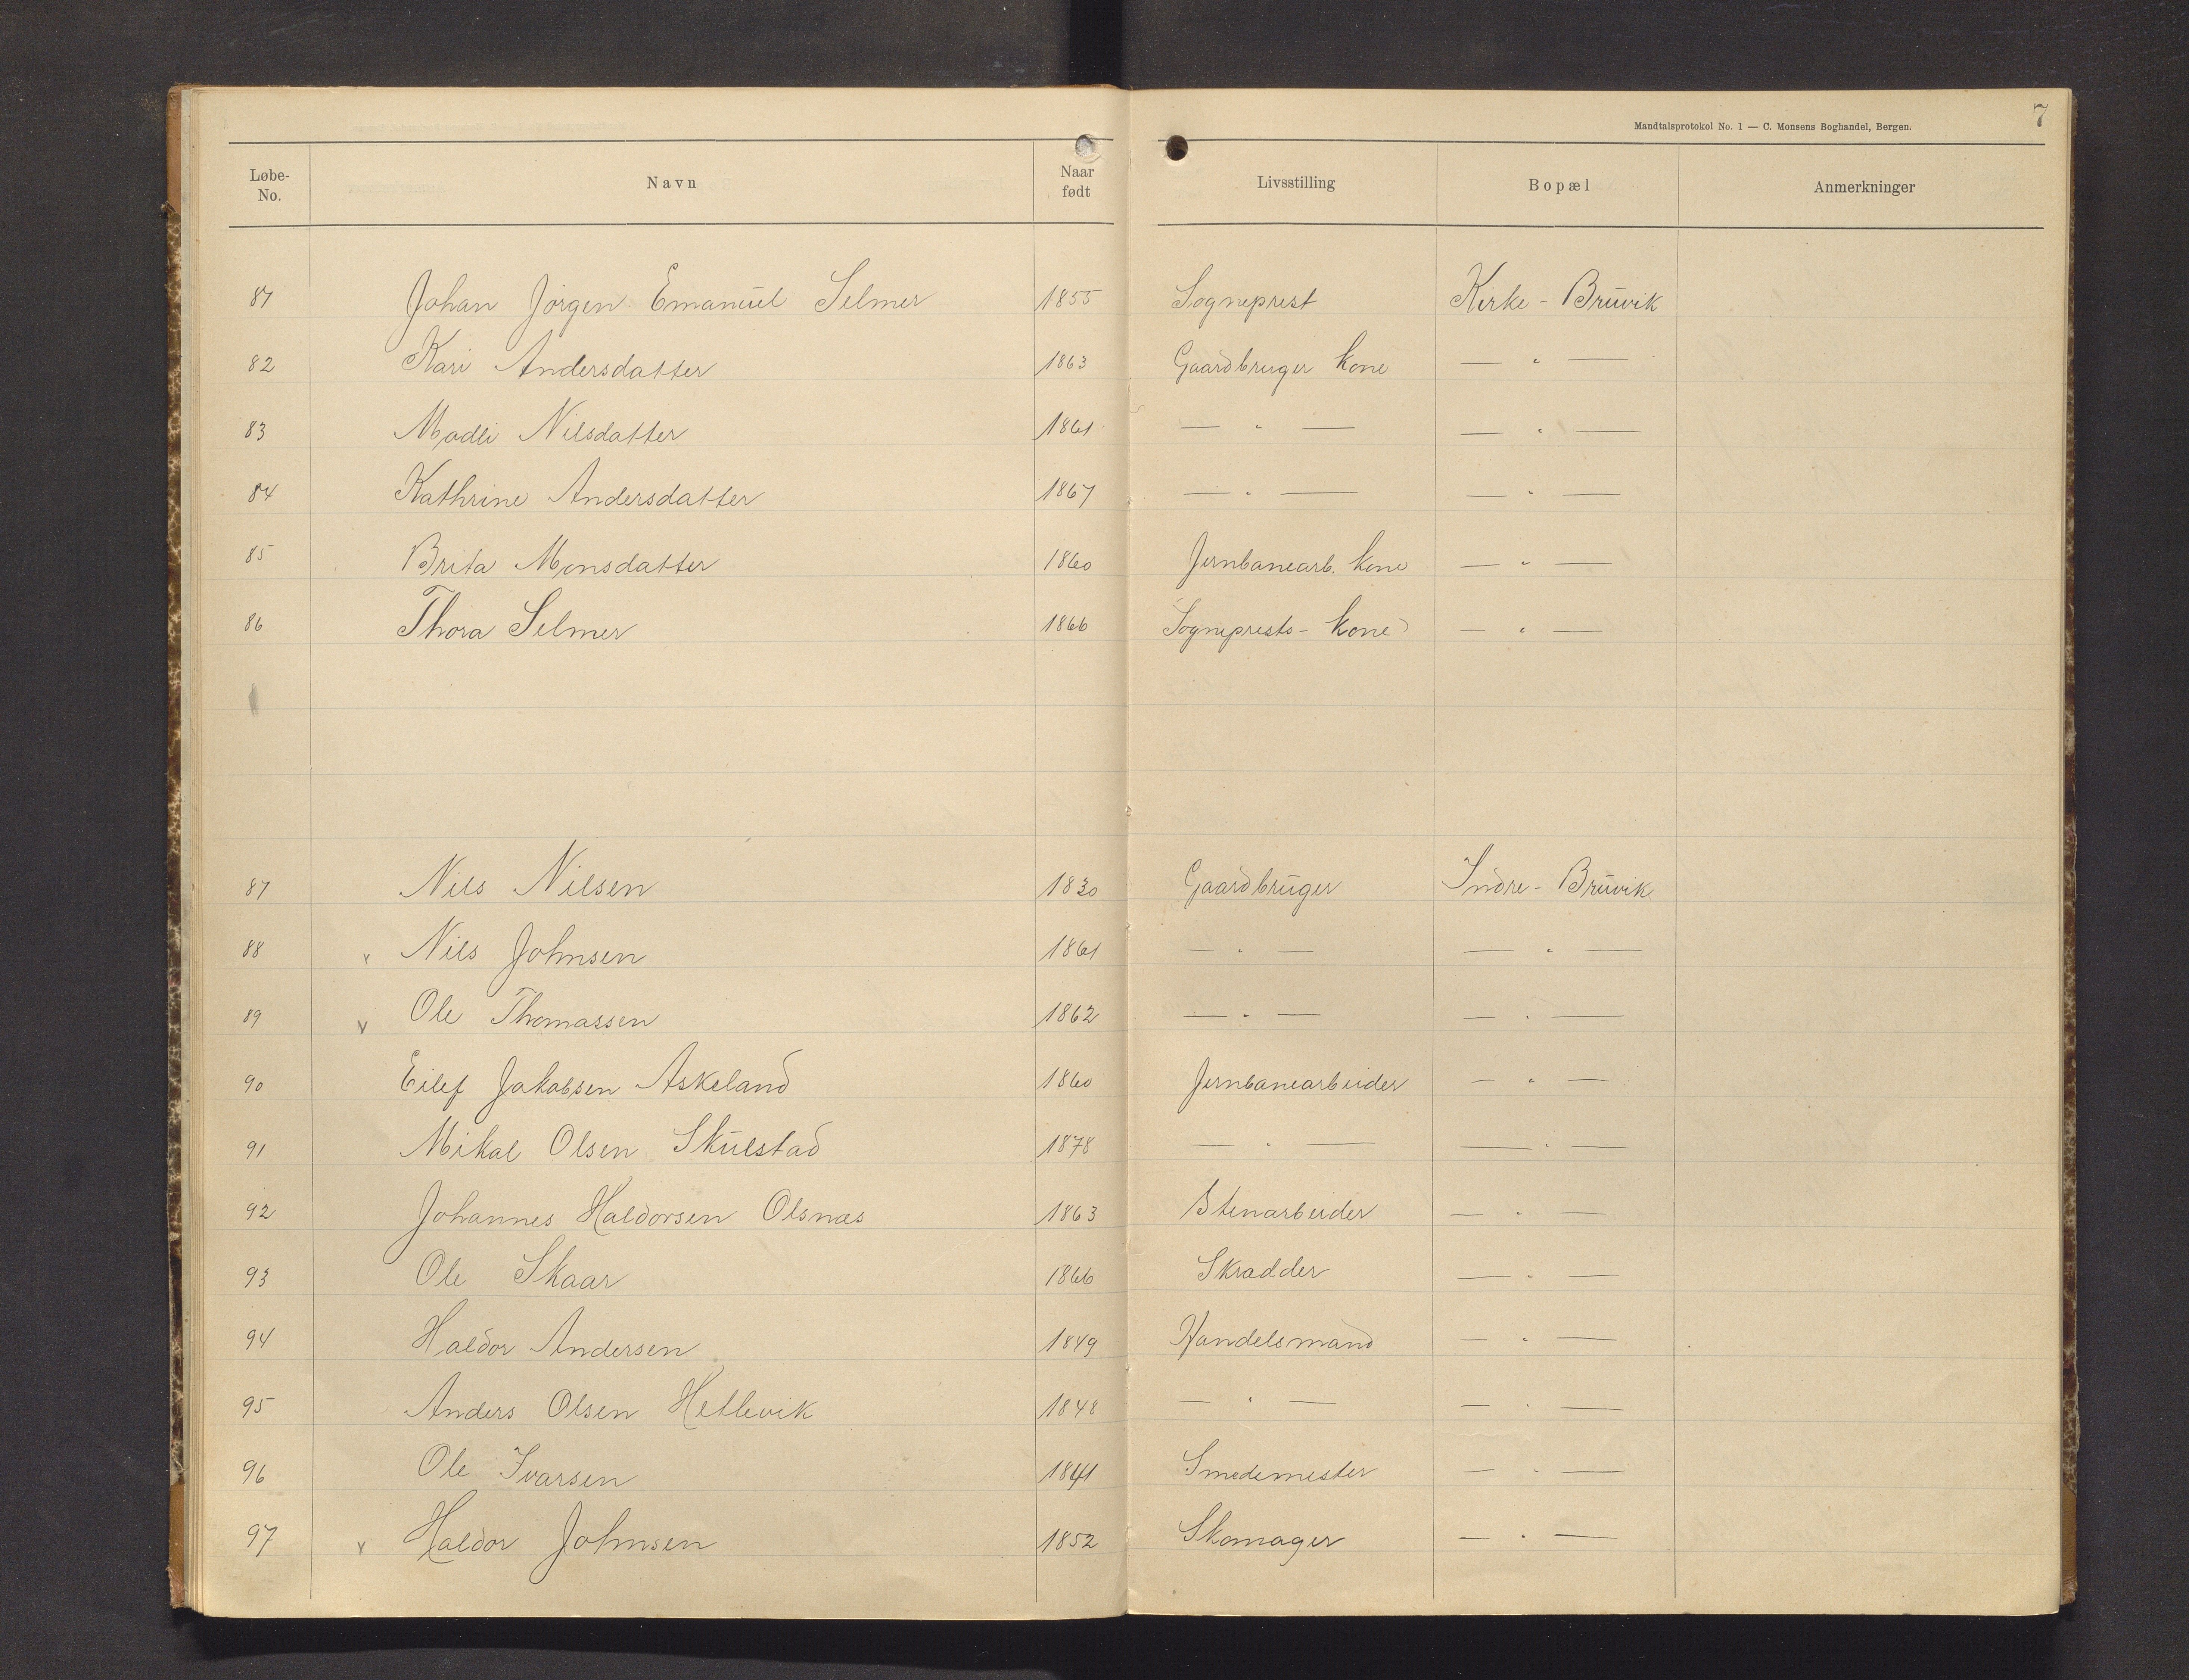 Mandtalsprotokol No. 1 — C. Monsens Boghandel, Bergen. 7
Løbe-No. Navn Naar født Livsstilling Bopæl Anmerkninger
81 Johan Jörgen Emanuel Selmer 1855 Sogneprest Kirke - Bruvik
82 Kari Andersdatter 1863 Gaardbruger kone — " —
83 Madli Nilsdatter 1861 — " — — " —
84 Kathrine Andersdatter 1867 — " — — " —
85 Brita Monsdatter 1860 Jernbanearb. kone — " —
86 Thora Selmer 1866 Sogneprests - kone — " —
87 Nils Nilsen 1830 Gaardbruger Indre - Bruvik
88 v Nils Johnsen 1861 — " — — " —
89 v Ole Thomassen 1862 — " — — " —
90 Eilef Jakobsen Askeland 1860 Jernbanearbeider — " —
91 Mikal Olsen Skulstad 1878 — " — — " —
92 Johannes Haldorsen Olsnæs 1863 Stenarbeider — " —
93 Ole Skaar 1866 Skrædder — " —
94 Haldor Andersen 1849 Handelsmand — " —
95 Anders Olsen Hellevik 1848 — " — — " —
96 Ole Ivarsen 1841 Smedemester — " —
97 v Haldor Johnsen 1852 Skomager — " —